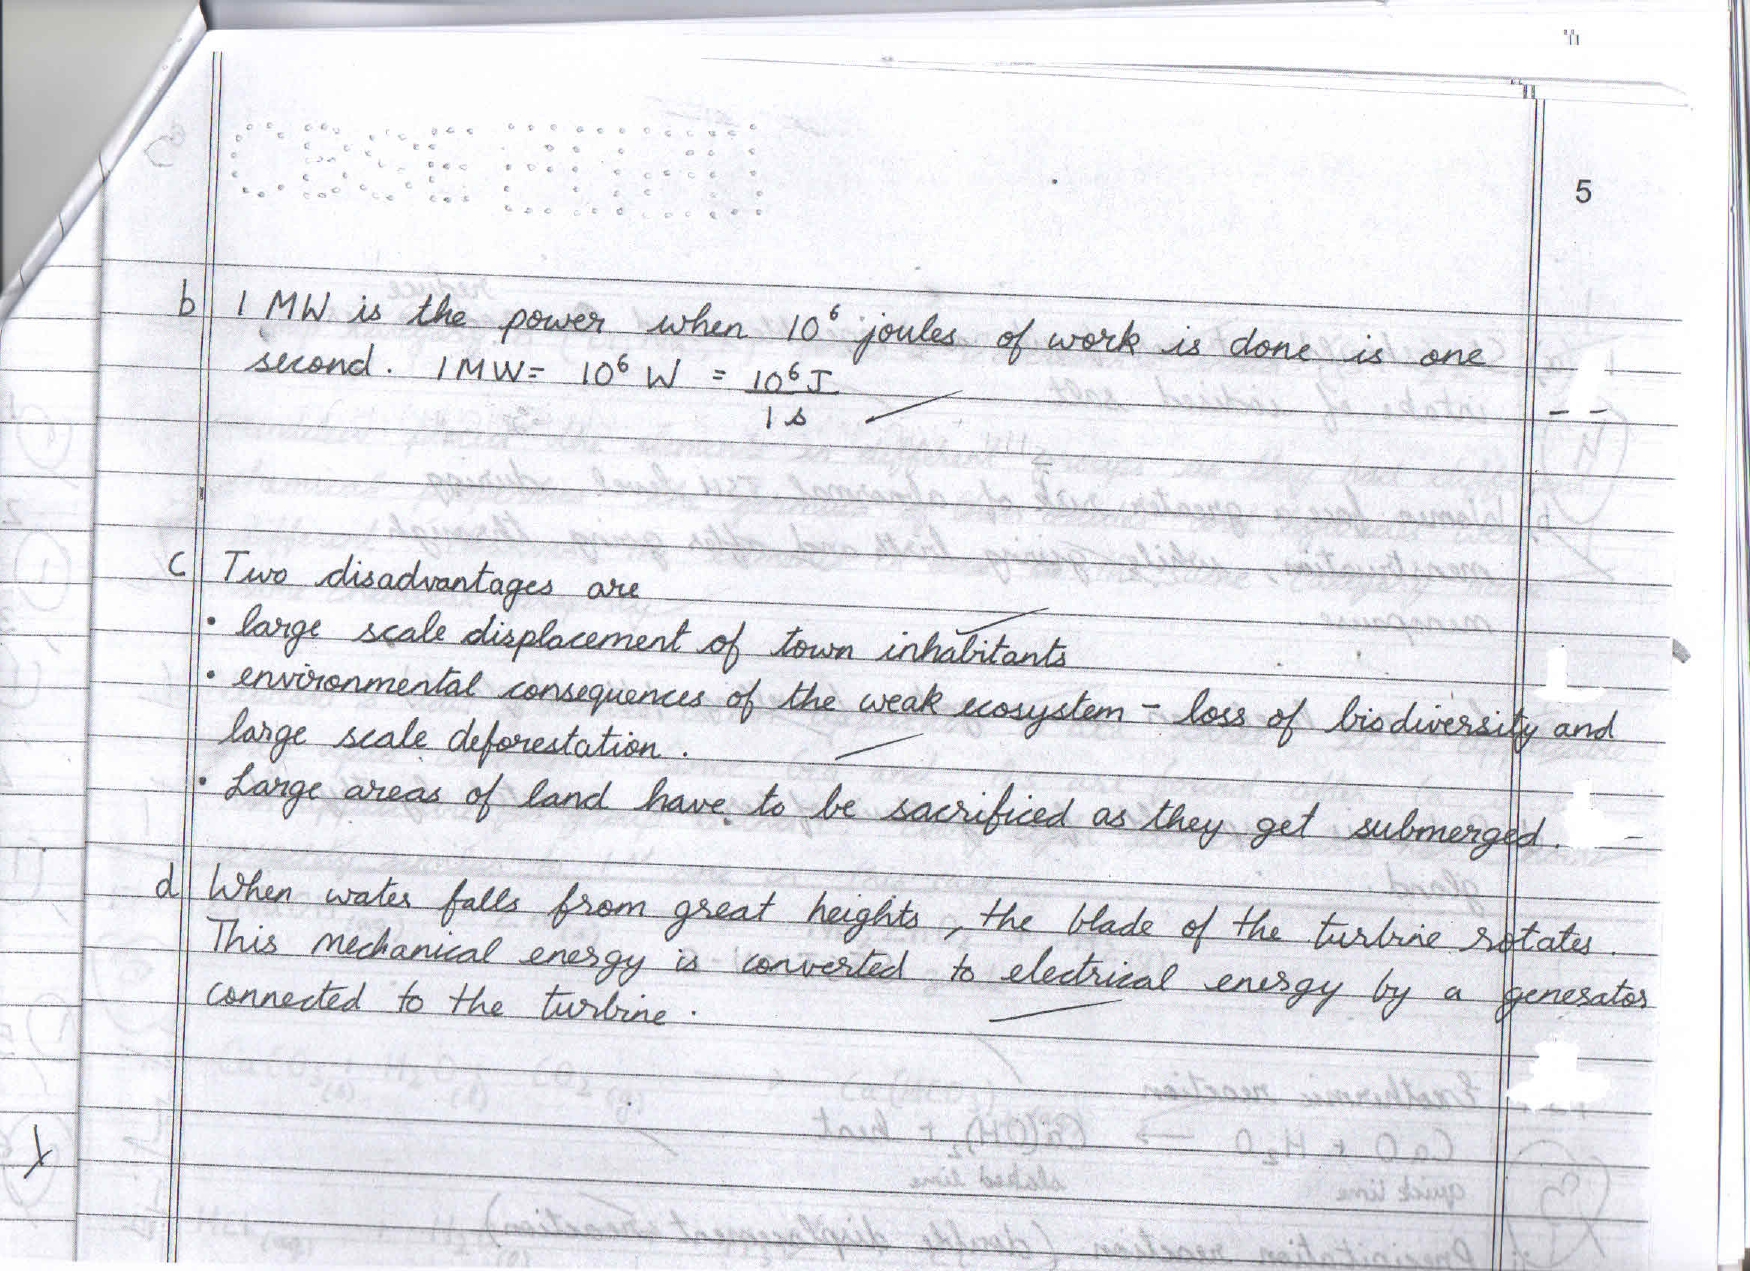 5
b 1 MW is the power when 10⁶ joules of work is done is one
second. 1 MW = 10⁶ W = 10⁶ J
1 s
c Two disadvantages are
• large scale displacement of town inhabitants
• environmental consequences of the weak ecosystem - loss of biodiversity and
large scale deforestation.
• Large areas of land have to be sacrificed as they get submerged.
d When water falls from great heights, the blade of the turbine rotates.
This mechanical energy is converted to electrical energy by a generator
connected to the turbine.